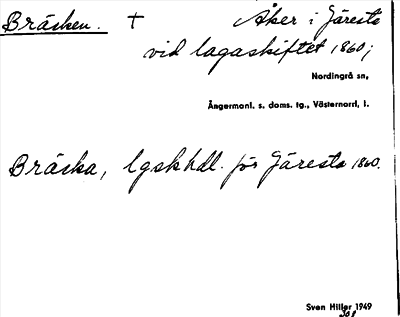 Bräsken. † Åker i Järesta
vid lagaskiftet 1860;
Nordingrå sn,
Ångermanl. s. doms. tg., Västernorrl, l.
Bräska, lgskhdl. för Järesta 1860.
Sven Hiller 1949